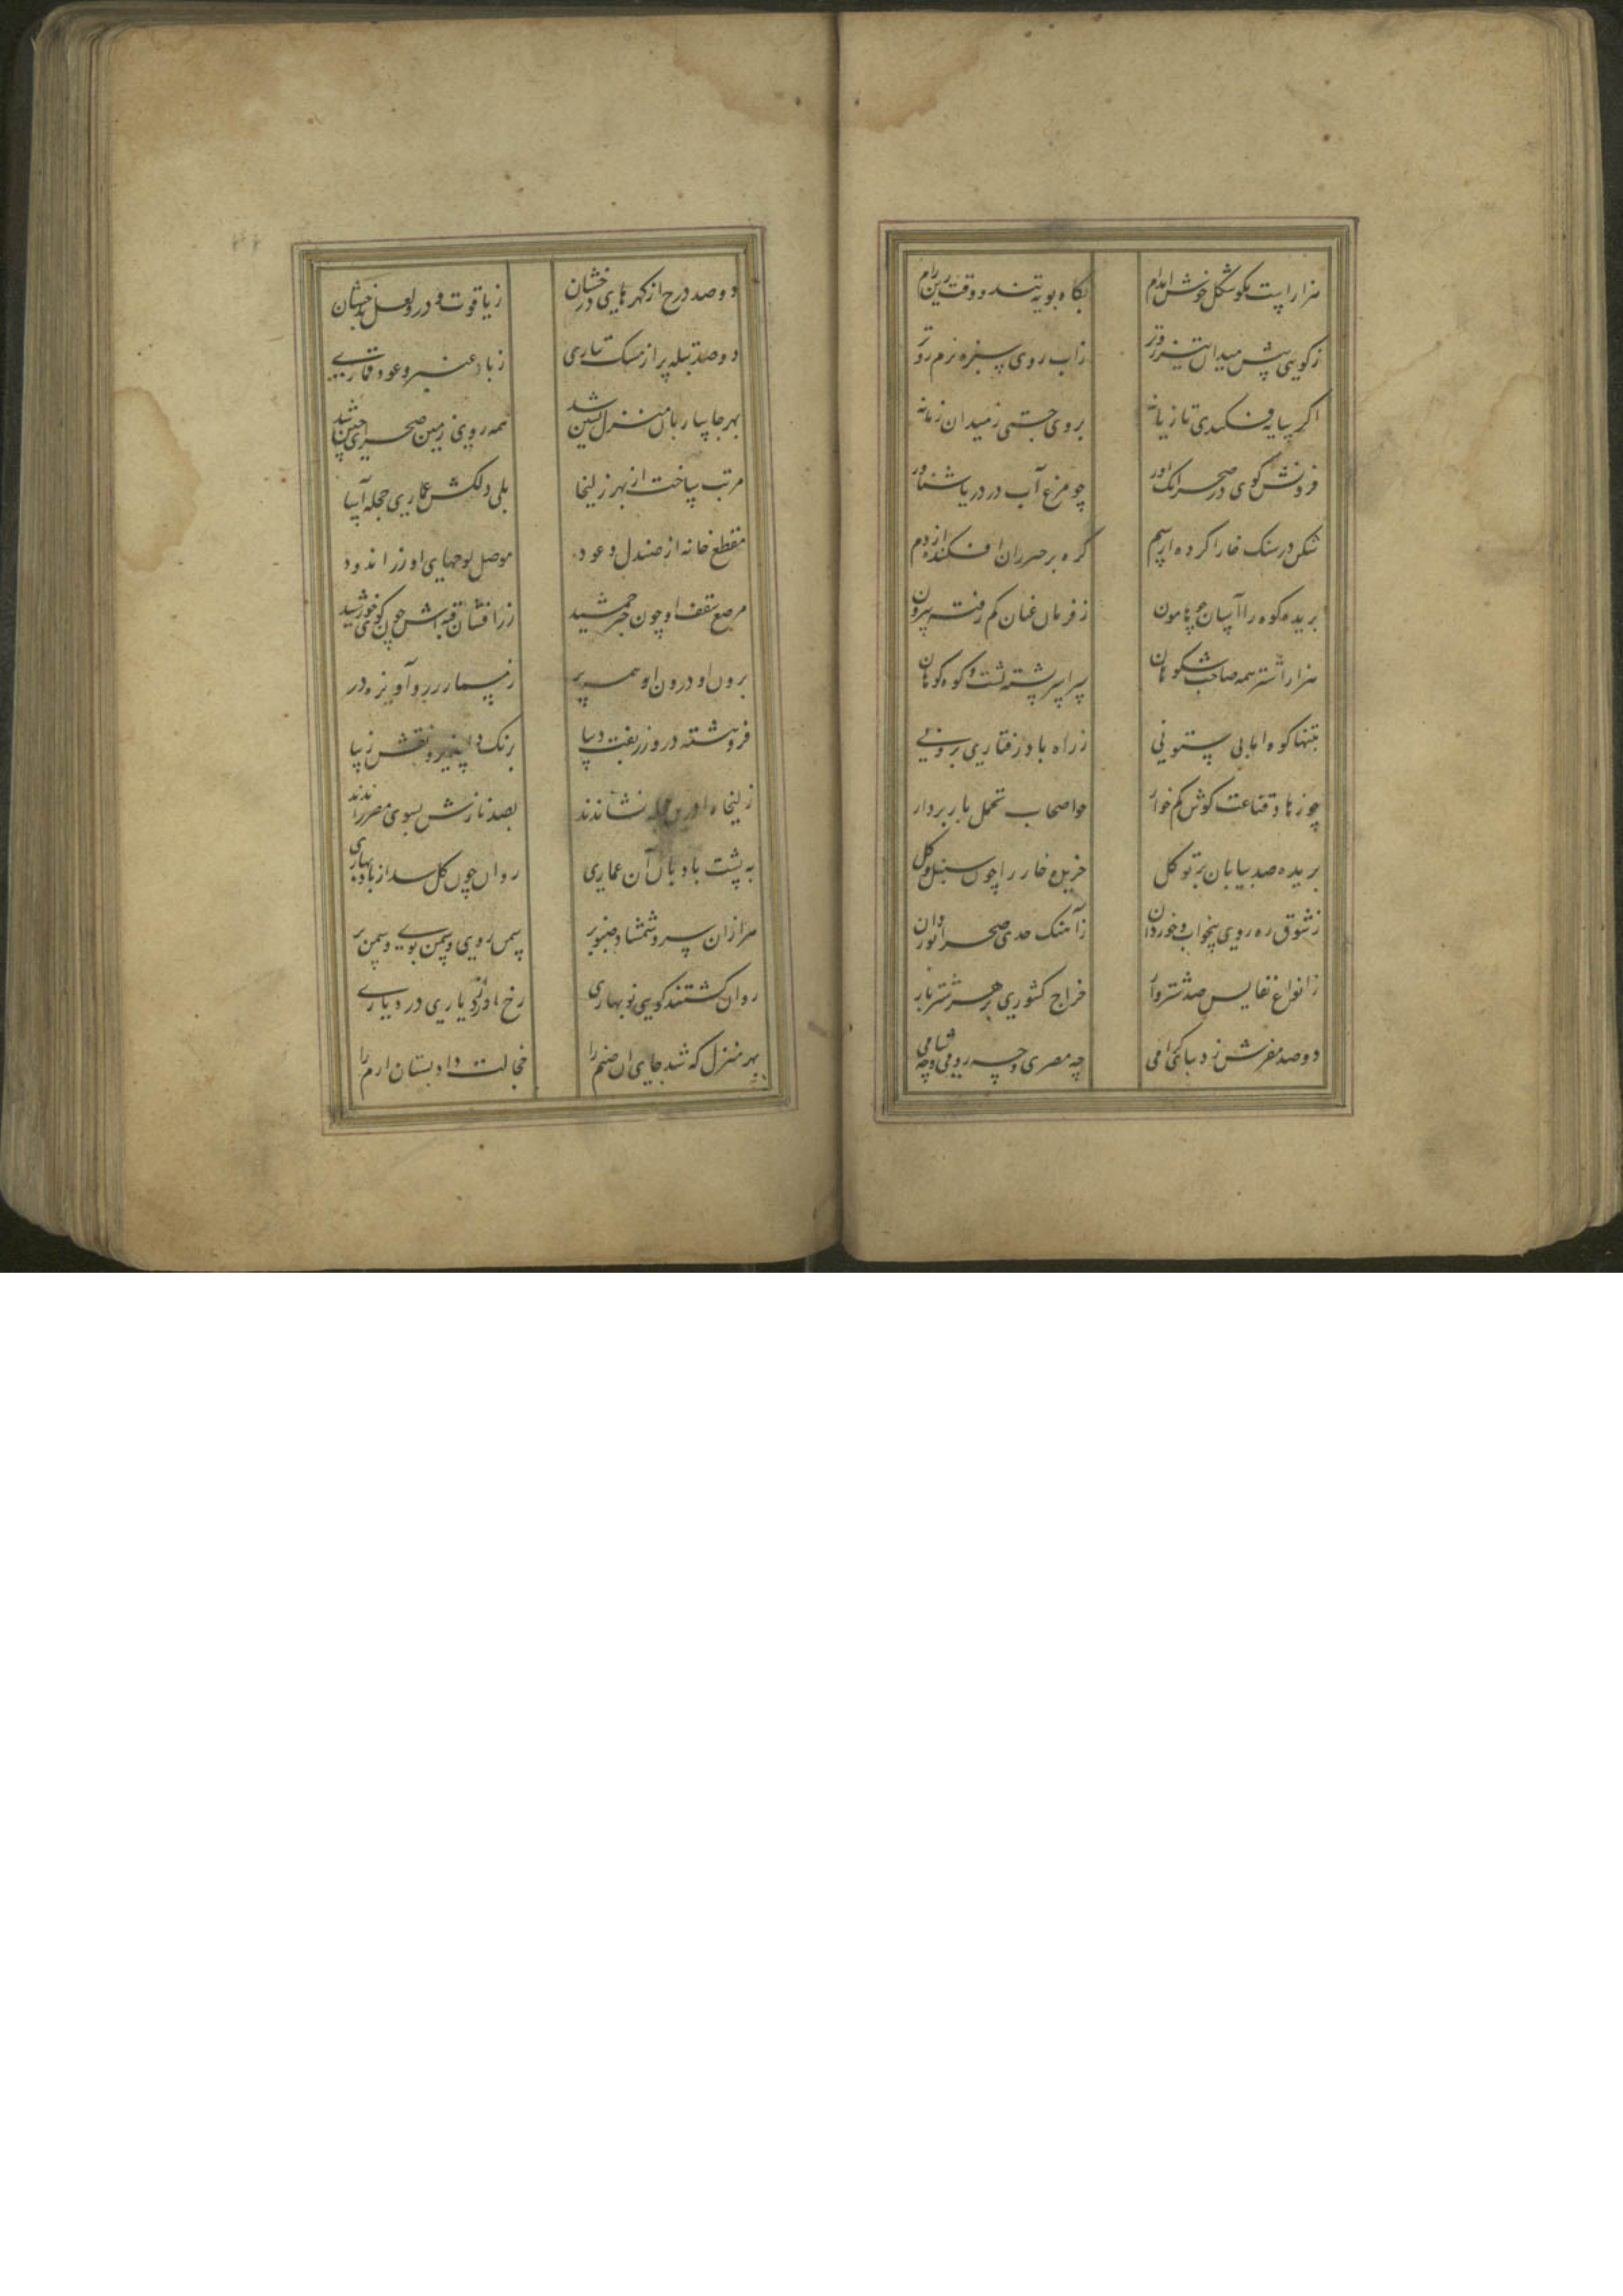 هزار اسپ نکو شکل خوش اندام بگاه پویه تند و وقت زین رام
ز گوی پیش میدان تیزروتر ز آب روی سبزه نرم روتر
اگر سایه فکندی تازیانه برون جستی ز میدان زمانه
چو مرغ آب در دریا شناور
شکن در سنگ خارا کرده از سم گره بر خیزران افکنده از دم
بریده کوه را آسان چو هامون ز فرمان عنان کم رفته بیرون
هزار اشتر همه صاحب شکوهان سراسر پشته پشت و کوه کوهان
ز راه بادرفتاری برونی
چو زهاد قناعت کوش کم خوار چو اصحاب تحمل باربردار
بریده صد بیابان بر توکل خریده خار را چون سنبل و گل
ز شوق ره روی بیخواب و خوردان ز آهنگ حدی صحرانوردان
ز انواع نفایس صد شتروار خراج کشوری بر هر شتر بار
دو صد مفرش ز دیبای گرامی چه مصری و چه رومی و چه شامی
دو صد درج از گهرهای درخشان ز یاقوت و در و لعل بدخشان
دو صد طبله پر از مشک تتاری ز باد عنبر و عود قماری
بهر جا ساربان منزل نشین شد همه روی زمین صحرای چین شد
مرتب ساخت از بهر زلیخا یکی دلکش عماری حجله آسا
مقطع خانه از صندل و عود موصل لوحهای او زر اندود
مرصع سقف او چون چتر جمشید زرافشان قبه اش چون گوی خورشید
برون او درون او همه پر ز مسمار زر و آویزه در
فروهشته در و زربفت دیبا برنک دلپذیر و نقش زیبا
زلیخا را در آن حجله نشاندند بصد نازش بسوی مصر راندند
به پشت بادپایان آن عماری روان چون گل شد از باد بهاری
هزاران سرو و شمشاد و صنوبر سمن روی و سمن بوی و سمن بر
روان گشتند گویی نوبهاری رخ آورد از دیاری در دیاری
بهر منزل که شد جای آن صنم را خجالت داد بستان ارم را